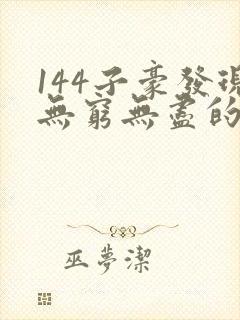 144子豪發現
無窮無盡的
巫夢潔